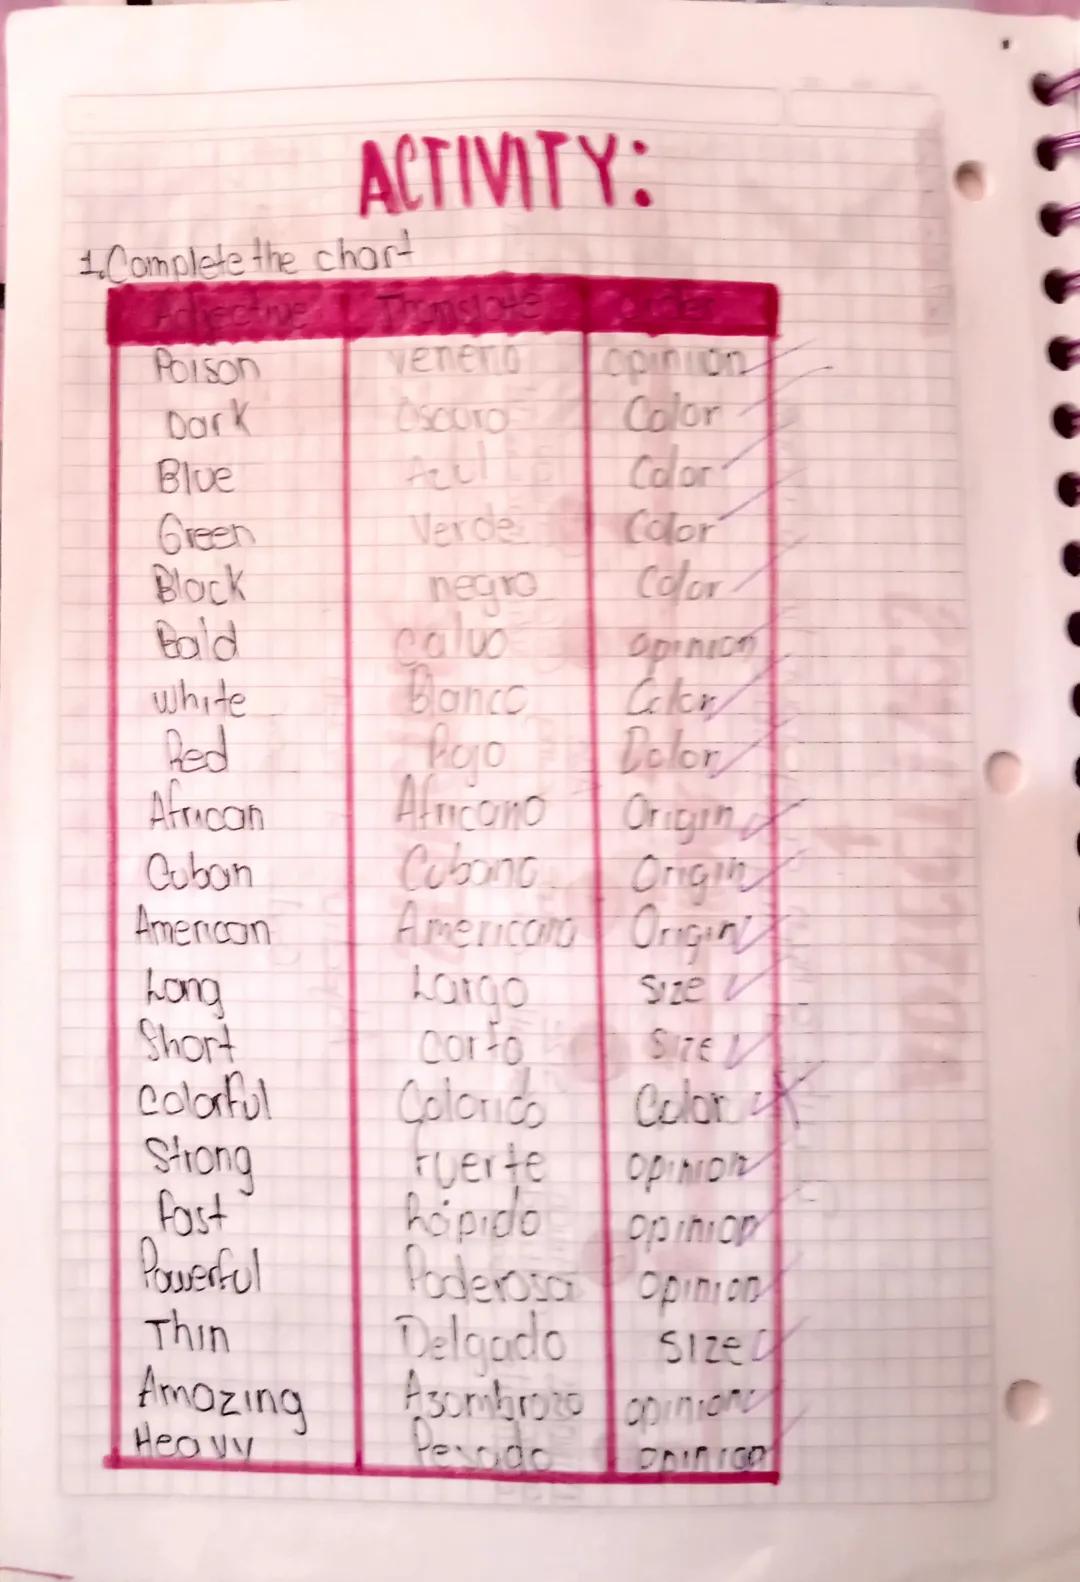 ACTIVITY:
1. Complete the chart
Adjective Translate Order
Poison veneno opinion
Dark Oscuro Color
Blue Azul Color
Green Verde Color
Black negro Color
Bald calvo opinion
White Blanco Color
Red Rojo Color
African Africano Origin
Cuban Cubano Origin
American Americano Origin
Long Largo Size
Short corto Size
Colorful Colorido Color
Strong Fuerte opinion
fast Rápido opinion
Powerful Poderoso opinion
Thin Delgado Size
Amazing Asombrozo opinion
Heavy Pesado opinion